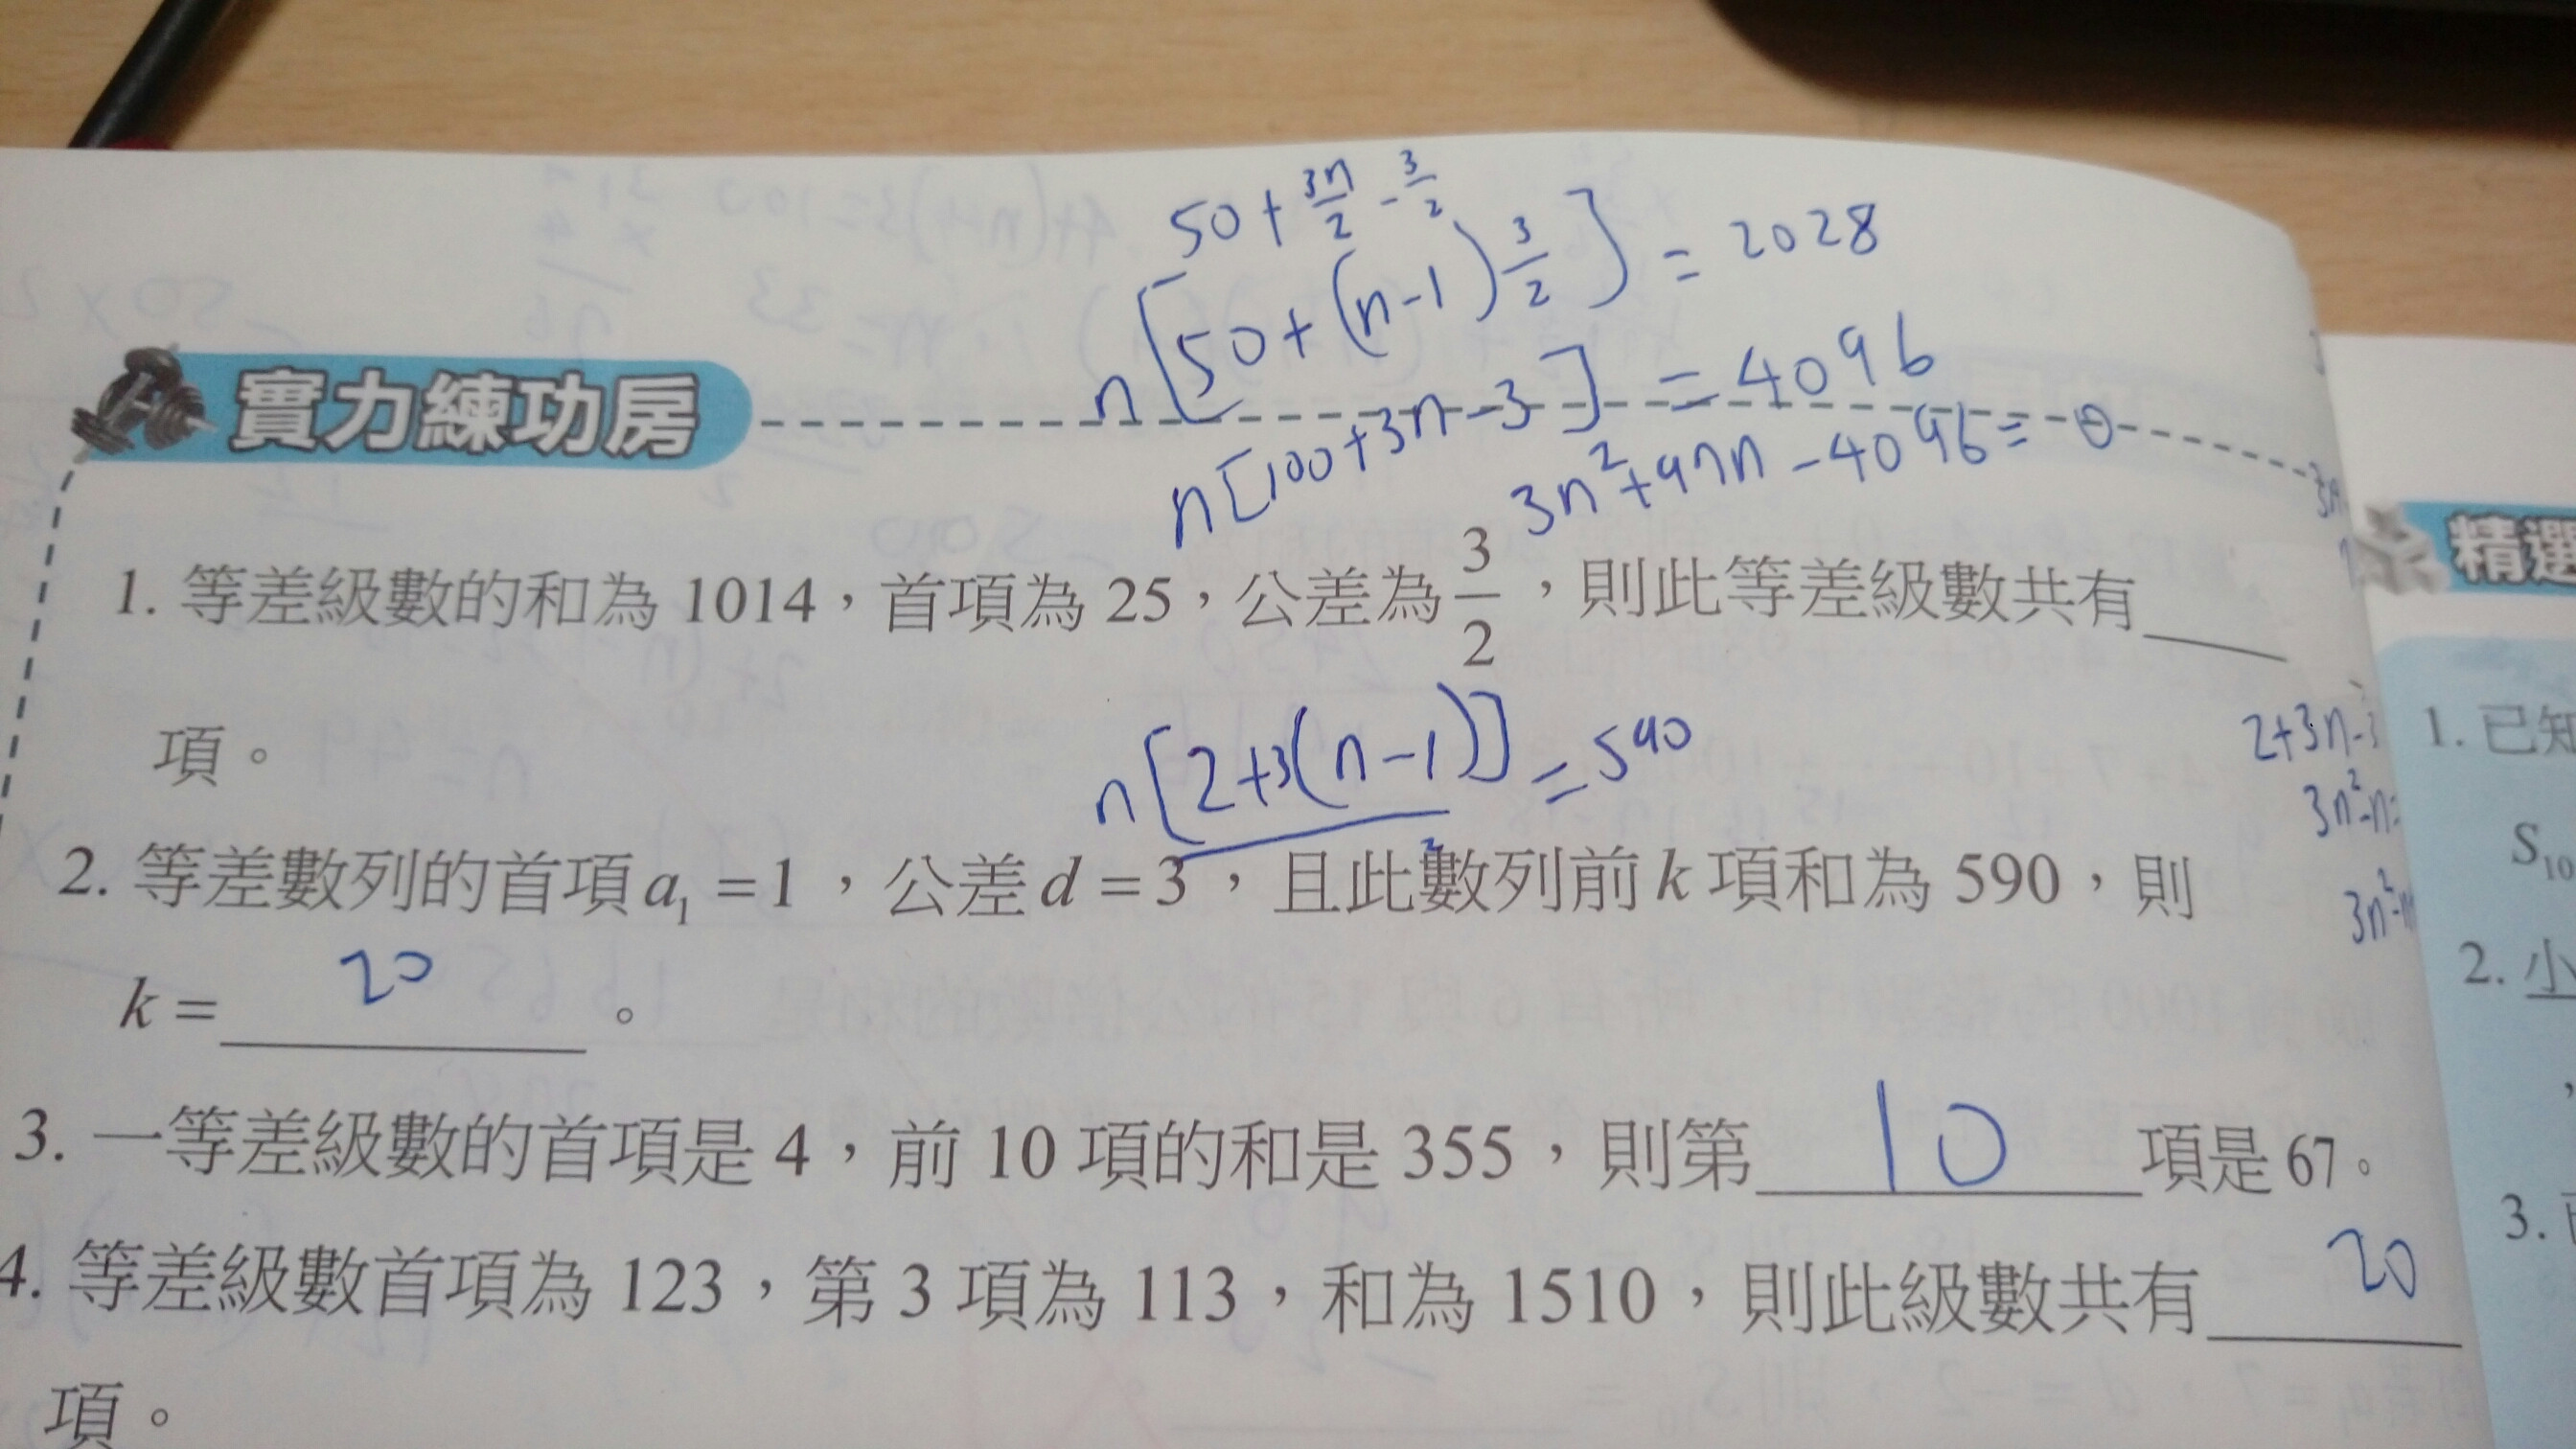 50+3n/2-3/2
n[50+(n-1)3/2]=2028
n[100+3n-3]=4096
3n²+97n-4096=0
實力練功房
1. 等差級數的和為 1014，首項為 25，公差為 3/2，則此等差級數共有____
項。
n[2+3(n-1)]/2=590
2. 等差數列的首項 a₁ = 1，公差 d = 3，且此數列前 k 項和為 590，則
k = 20。
3. 一等差級數的首項是 4，前 10 項的和是 355，則第 10 項是 67。
4. 等差級數首項為 123，第 3 項為 113，和為 1510，則此級數共有 20
項。
2+3n-3
3n²-n
3n²-n
精選
1. 已知
S₁₀
2. 小
3.